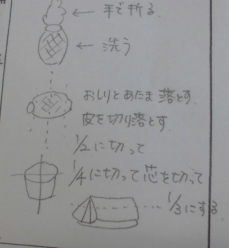 手で折る
洗う
おしりとあたま落とす
皮を切り落とす
1/2に切って
1/4に切って芯を切って
1/3にする